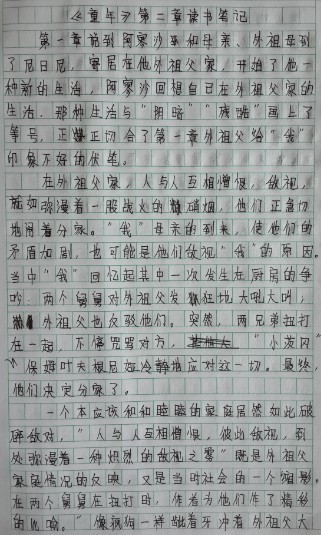 《童年》第二章读书笔记
第一章前到阿廖沙和母亲、外祖母到
了尼日尼，寄居在他外祖父家，开始了他一
种新的生活，阿廖沙回想自己在外祖父家的
生活，那种生活与“阴暗”“残酷”画上了
等号，正正切合了第一章外祖父给“我”
印象不好的伏笔。
在外祖父家，人与人互相憎恨，敌视，
就如弥漫着一股战火的硝烟，他们正急切
地闹着分家。“我”母亲的到来，使他们的
矛盾加剧，也可能是他们敌视“我”的原因。
当中“我”回忆起其中一次发生在厨房的争
吵，两个舅舅对外祖父发疯狂地大吼大叫，
外祖父也反驳他们。突然，两兄弟扭打
在一起，不停咒骂对方，“小泼闪
”保姆叶夫根尼娅冷静地应对这一切。最终，
他们决定分家了。
一个本应该和和睦睦的家庭居然如此破
碎敌对，“人与人互相憎恨，彼此敌视，到
处弥漫着一种炽烈的敌视之雾”既是外祖父
家庭情况的反映，又是当时社会的一个缩影。
在两个舅舅在扭打时，作者为他们作了精彩
的比喻。“像疯狗一样龇着牙冲着外祖父大